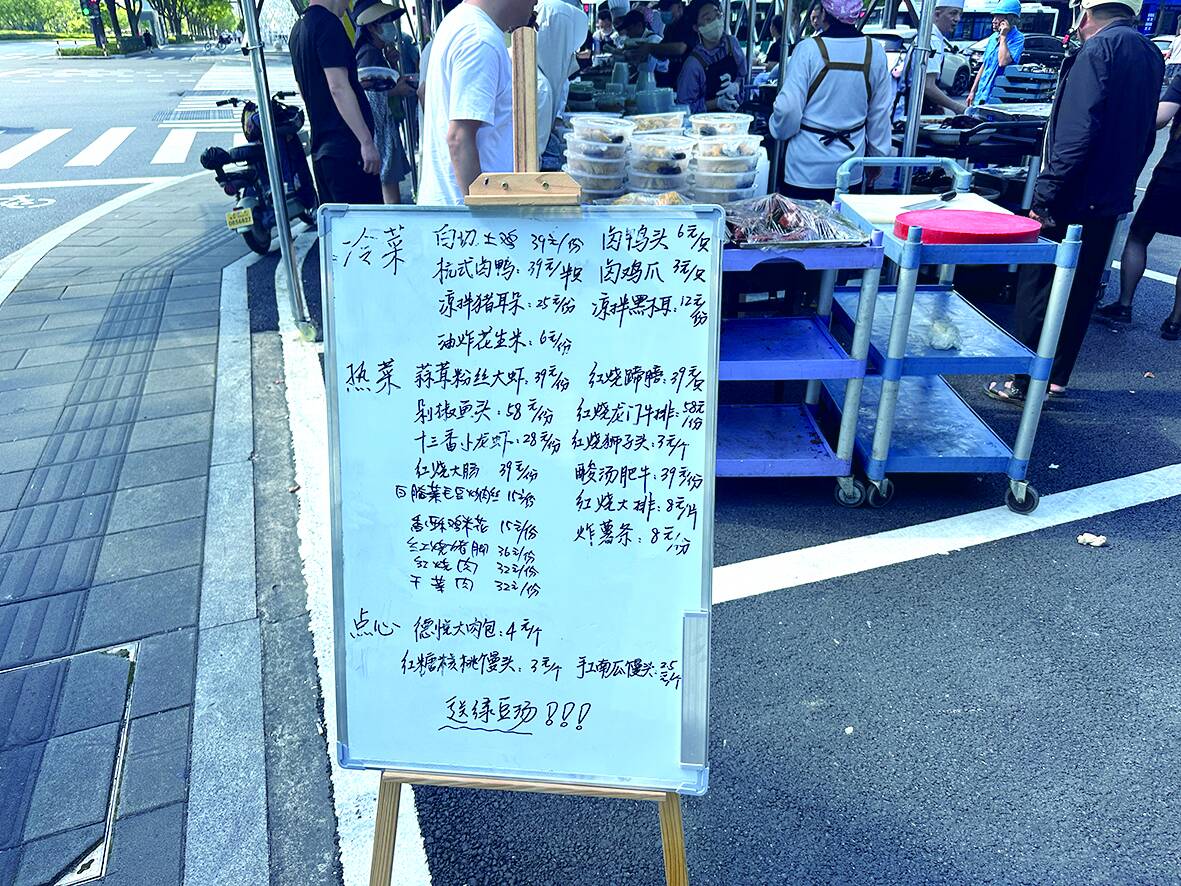 冷菜 白切土鸡 39元/份 卤鸭头 6元/只
杭式卤鸭:39元/半只 卤鸡爪 3元/只
凉拌猪耳朵:25元/份 凉拌黑木耳:12元/份
油炸花生米:6元/份
热菜 蒜茸粉丝大虾:39元/份 红烧蹄膀:39元/只
剁椒鱼头:58元/份 红烧龙门牛排:58元/份
十三香小龙虾:28元/份 红烧狮子头:3元/个
红烧大肠 39元/份 酸汤肥牛:39元/份
毛豆 肉丝 15元/份 红烧大排:8元/片
香酥鸡米花 15元/份 炸薯条:8元/份
红烧猪脚 36元/份
红烧肉 32元/份
干菜肉 32元/份
点心 德悦大肉包:4元/个
红糖核桃馒头:3元/个 手工南瓜馒头:2.5元/个
送绿豆汤!!!